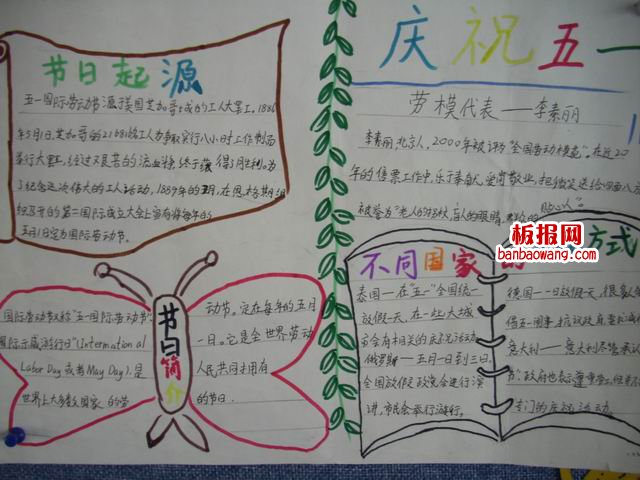 节日起源
五一国际劳动节源于美国芝加哥城的工人大罢工。1886
年5月1日,芝加哥的216816名工人为争取实行八小时工作制而
举行大罢工,经过艰苦的流血
了纪念这次伟大的工人活动,1889年的
组织召开的第二国际成立大会上宣布将每年的
五月1日定为国际劳动节。
节日简介
国际劳动节又称"五一国际劳动节"
国际示威游行日"(International
Labor Day或者May Day),是
世界上大多数国家的劳
动节。定在每年的五月
一日。它是全世界劳动
人民共同拥有
的节日.
庆祝五一
劳模代表——李素丽
李素丽,北京人,2000年被评为"全国劳动模范"。在近20
年的售票工作中,乐于奉献,爱岗敬业,把微笑送给四面八方
被誉为"老人的拐杖,盲人的眼睛,
贴心人"。
不同国家的 方式
泰国—在"五一"全国统一
放假一天,在一些大城
市会有相关的庆祝活动.
俄罗斯—五月一日到三日,
全国放假,政党会进行演
讲,市民会举行游行。
德国—1日放假一天,很多
借五一闹事,抗议政府
意大利——意大利尽管承认
节,政府也表示
专门的庆祝活动.
板报网
banbaowang.com